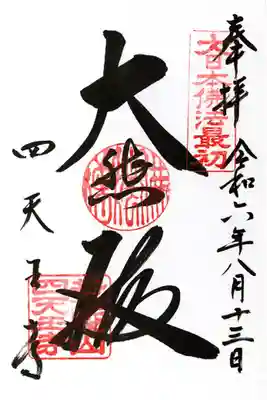 奉拝 令和六年八月十三日
大日本佛法最初
大悲殿
四天王寺
荒陵山
四天王寺